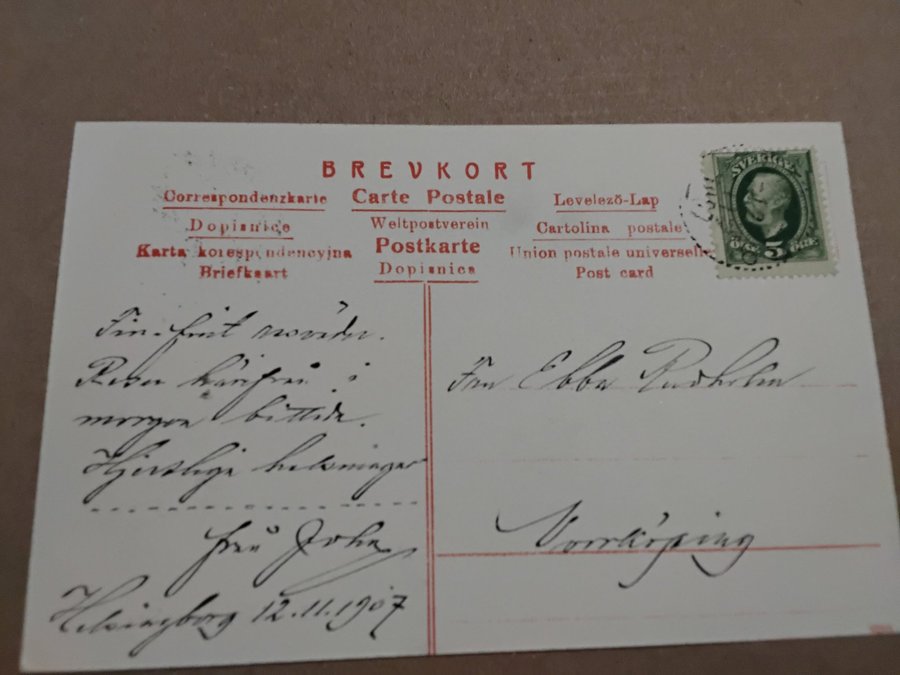 BREVKORT
Correspondenzkarte Carte Postale Levelező-Lap
Dopisnice Weltpostverein Cartolina postale
Karta korespondencyjna Postkarte Union postale universelle
Briefkaart Dopisnica Post card
SVERIGE
5 ÖRE
Fin-fint
Reser härifrån i
morgon bittida.
Hjertliga helsningar
från John
Helsingborg 12.11.1907
Fru Ebba
Norrköping